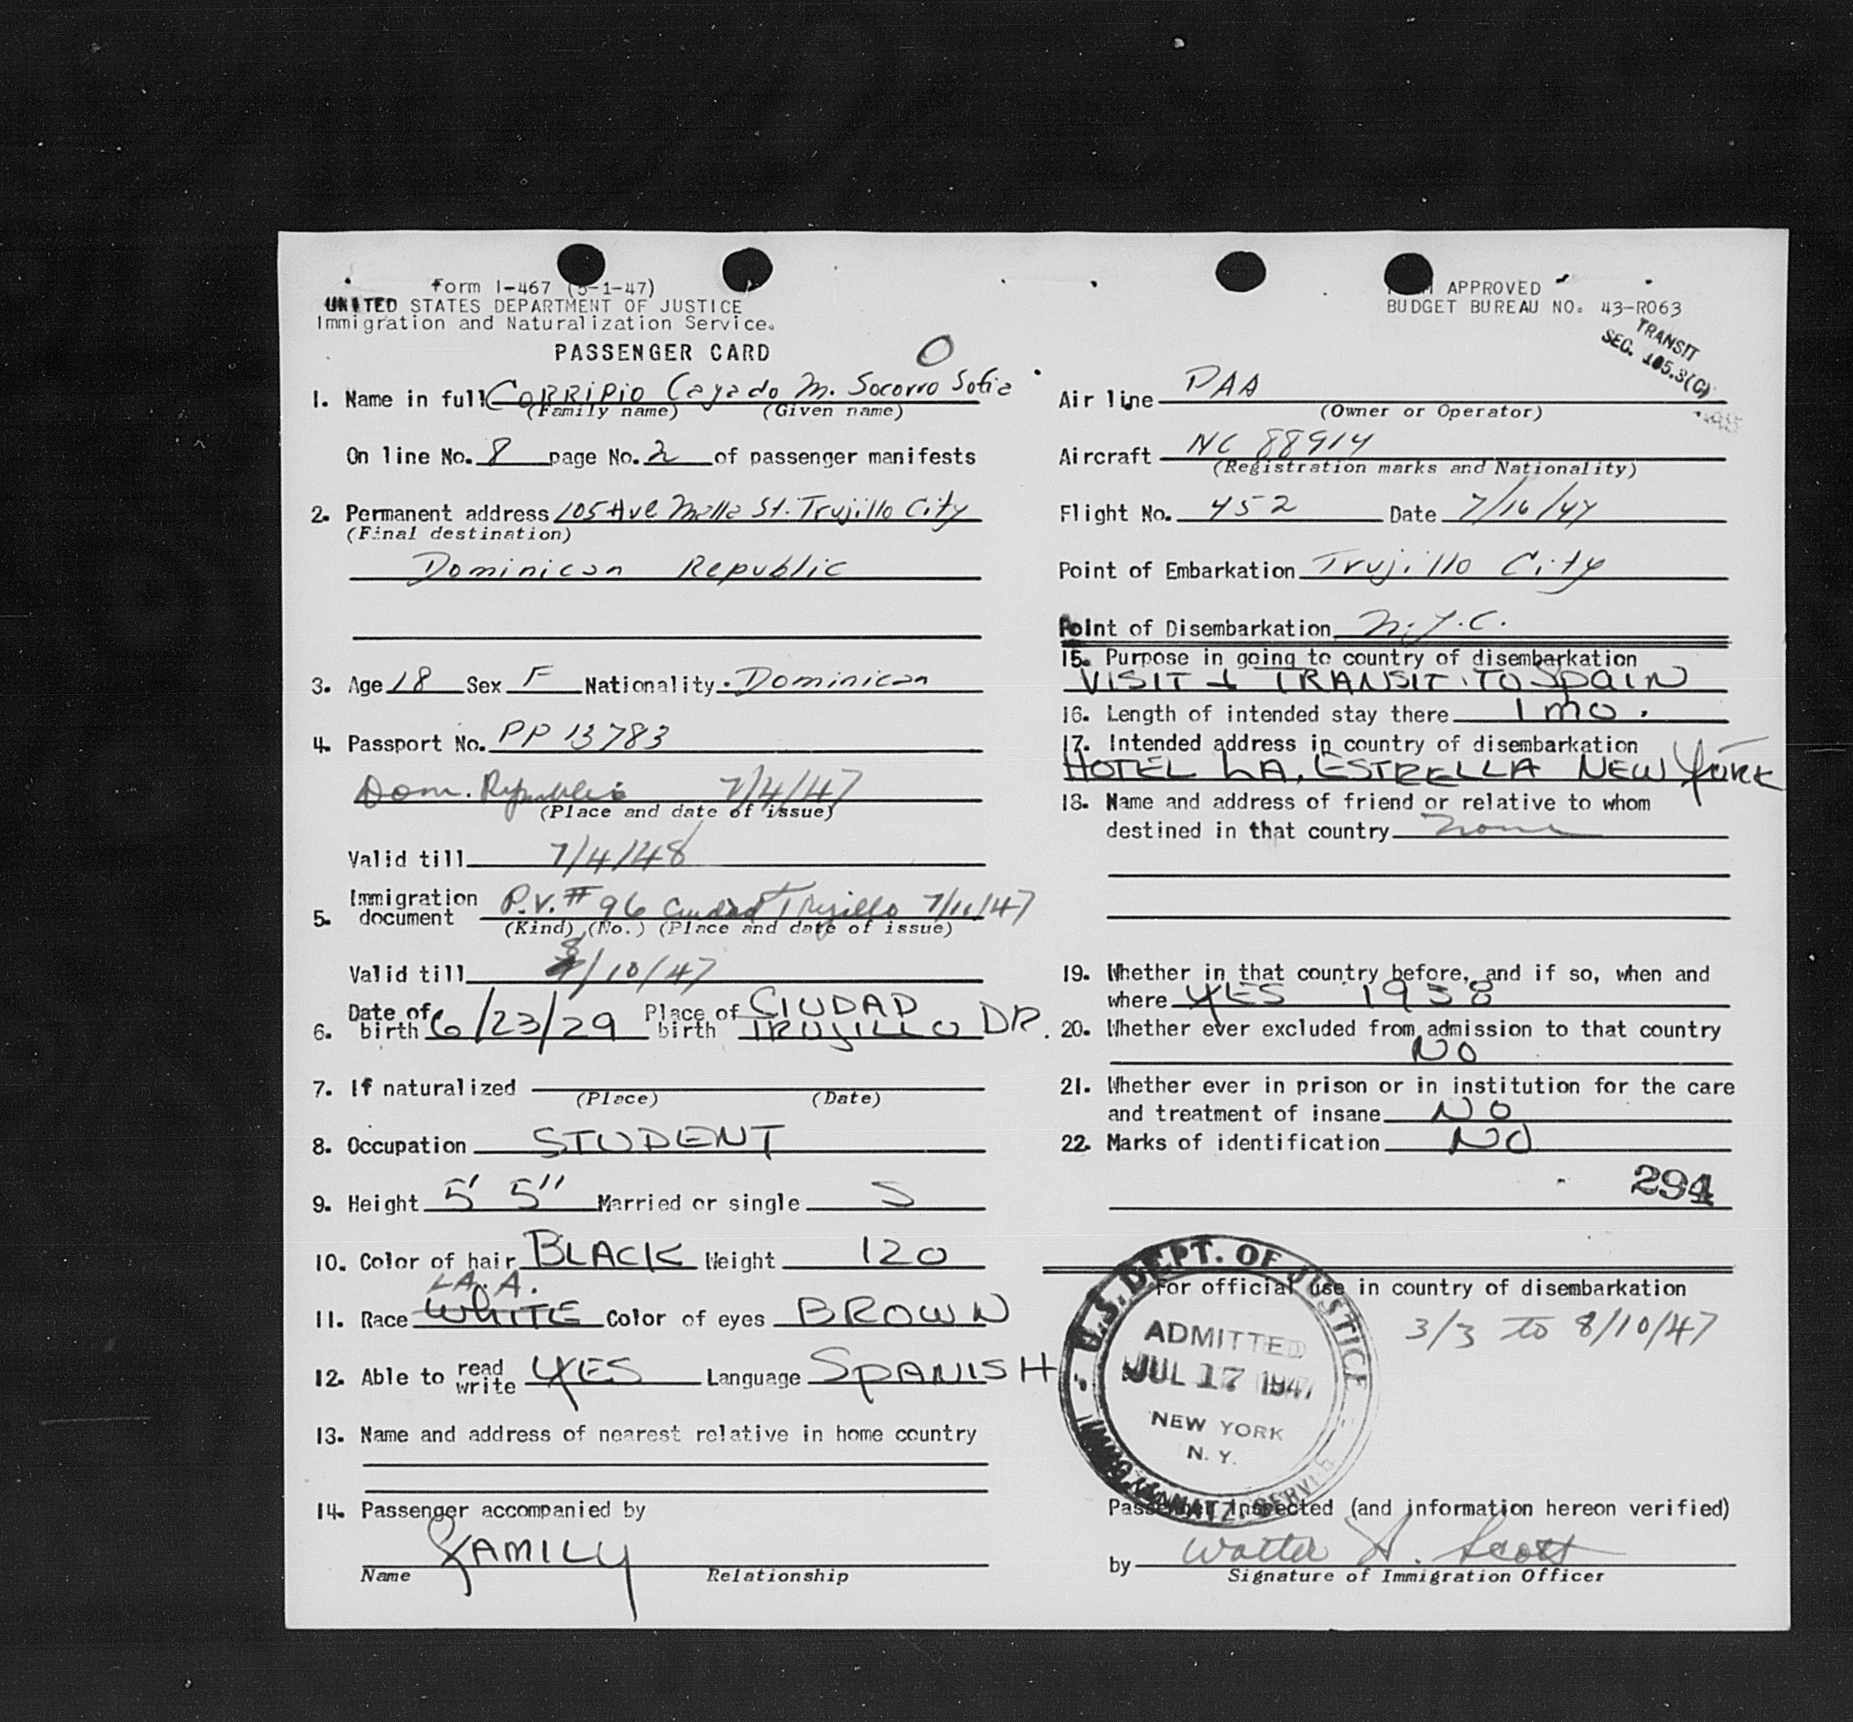 Form I-467 (5-1-47)
UNITED STATES DEPARTMENT OF JUSTICE
Immigration and Naturalization Service.
PASSENGER CARD
O
1. Name in full Corripio Cayado M. Socorro Sofia
(Family name) (Given name)
On line No. 8 page No. 2 of passenger manifests
2. Permanent address 105 Ave Mella St. Trujillo City
(Final destination)
Dominican Republic
3. Age 18 Sex F Nationality Dominican
4. Passport No. PP 13783
Dom. Republic 7/4/47
(Place and date of issue)
Valid till 7/4/48
5. Immigration document P.V. # 96 Ciudad Trujillo 7/11/47
(Kind) (No.) (Place and date of issue)
Valid till 8/10/47
6. Date of birth 6/23/29 Place of birth CIUDAD TRUJILLO DR.
7. If naturalized
(Place) (Date)
8. Occupation STUDENT
9. Height 5' 5" Married or single S
10. Color of hair BLACK Weight 120
LA. A.
11. Race WHITE Color of eyes BROWN
12. Able to read write YES Language SPANISH
13. Name and address of nearest relative in home country
14. Passenger accompanied by
FAMILY
Name Relationship
APPROVED
BUDGET BUREAU NO. 43-R063
TRANSIT
SEC. 105.3(G)
Air line PAA
(Owner or Operator)
Aircraft NC 88914
(Registration marks and Nationality)
Flight No. 452 Date 7/16/47
Point of Embarkation Trujillo City
Point of Disembarkation N.Y.C.
15. Purpose in going to country of disembarkation
VISIT & TRANSIT TO SPAIN
16. Length of intended stay there 1 MO.
17. Intended address in country of disembarkation
HOTEL LA ESTRELLA NEW YORK
18. Name and address of friend or relative to whom
destined in that country None
19. Whether in that country before, and if so, when and
where YES 1938
20. Whether ever excluded from admission to that country
NO
21. Whether ever in prison or in institution for the care
and treatment of insane NO
22. Marks of identification NO
294
For official use in country of disembarkation
3/3 to 8/10/47
U.S. DEPT. OF JUSTICE
ADMITTED
JUL 17 1947
NEW YORK
N. Y.
IMMIG. & NATZ. SERVICE
Passenger Inspected (and information hereon verified)
by Walter H. Scott
Signature of Immigration Officer